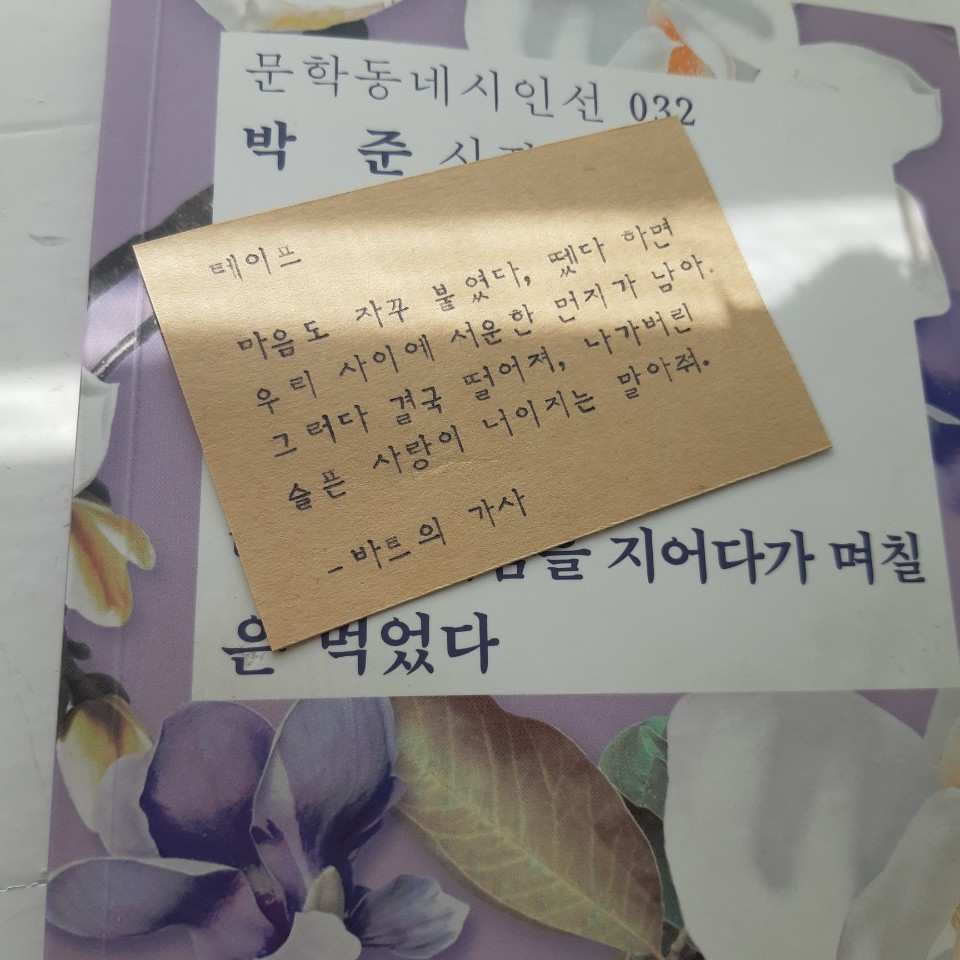 문학동네시인선 032
박 준
테이프
마음도 자꾸 붙였다, 뗐다 하면
우리 사이에 서운한 먼지가 남아.
그러다 결국 떨어져, 나가버린
슬픈 사랑이 너이지는 말아줘.
- 바트의 가사
지어다가 며칠
은 먹었다